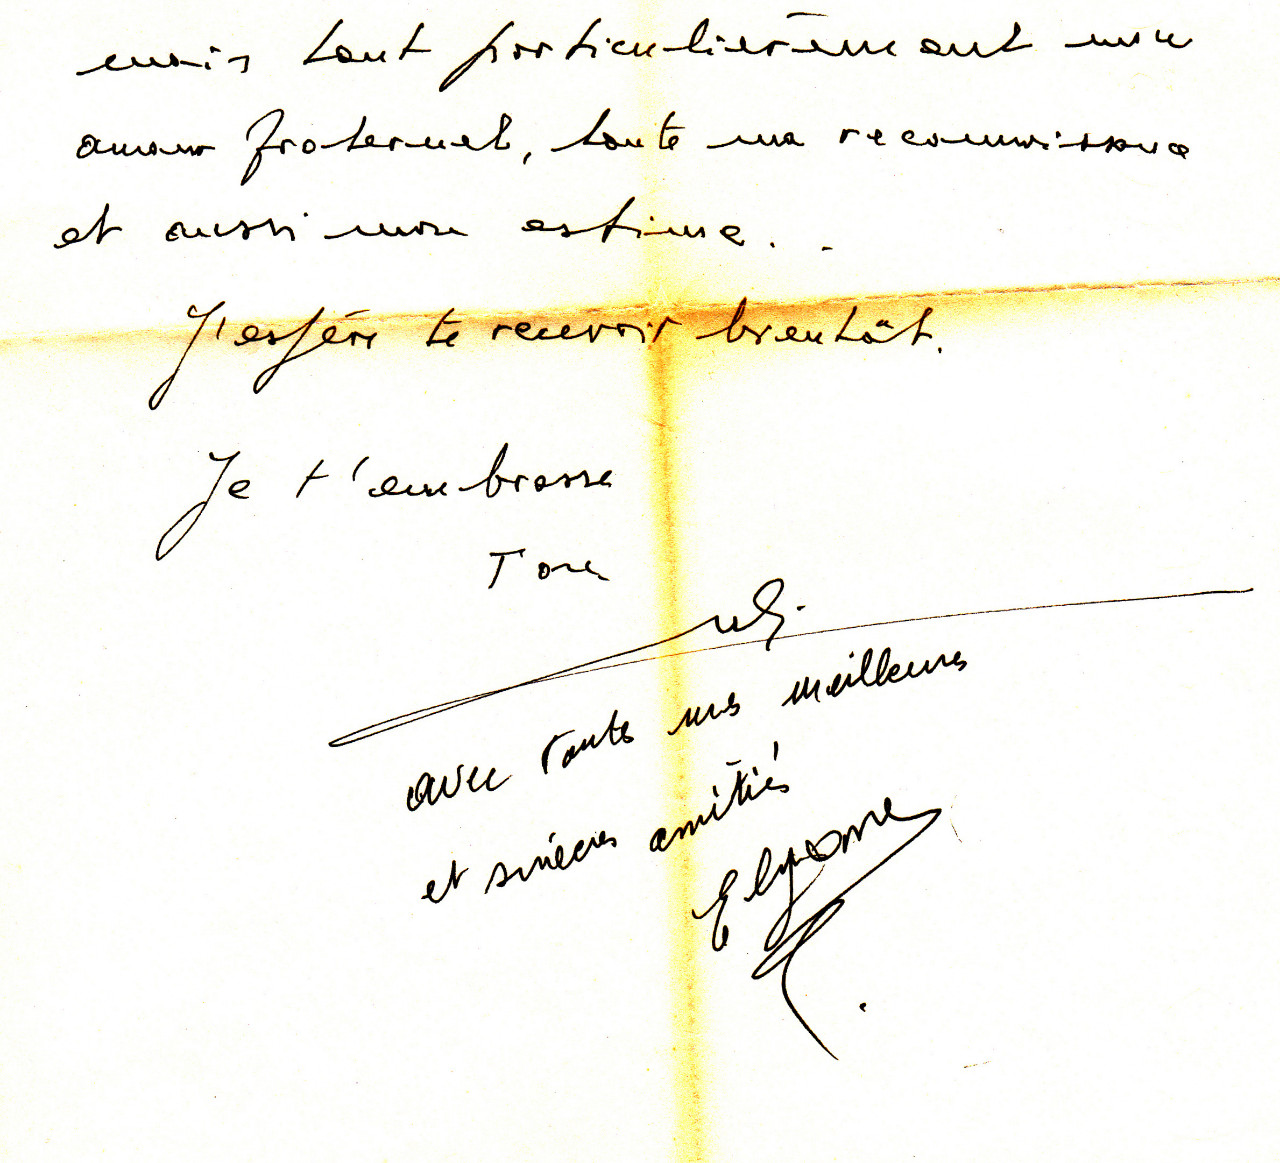 mais tout particulièrement mon
amour fraternel, toute ma reconnaissance
et aussi mon estime. .
J'espère te recevoir bientôt.
Je t'embrasse
Ton
avec toutes mes meilleures
et sincères amitiés